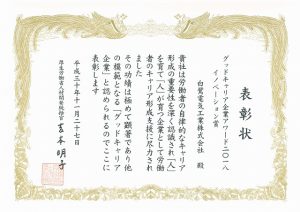 表彰状
グッドキャリア企業アワード二〇一八
イノベーション賞
白鷺電気工業株式会社 殿
貴社は労働者の自律的なキャリア
形成の重要性を深く認識され「人」
を育て「人」が育つ企業として労働
者のキャリア形成支援に尽力され
ました
その功績は極めて顕著であり他
の模範となる「グッドキャリア
企業」と認められるのでここに
表彰します
平成三十年十一月二十七日
厚生労働省人材開発統括官
吉本明子